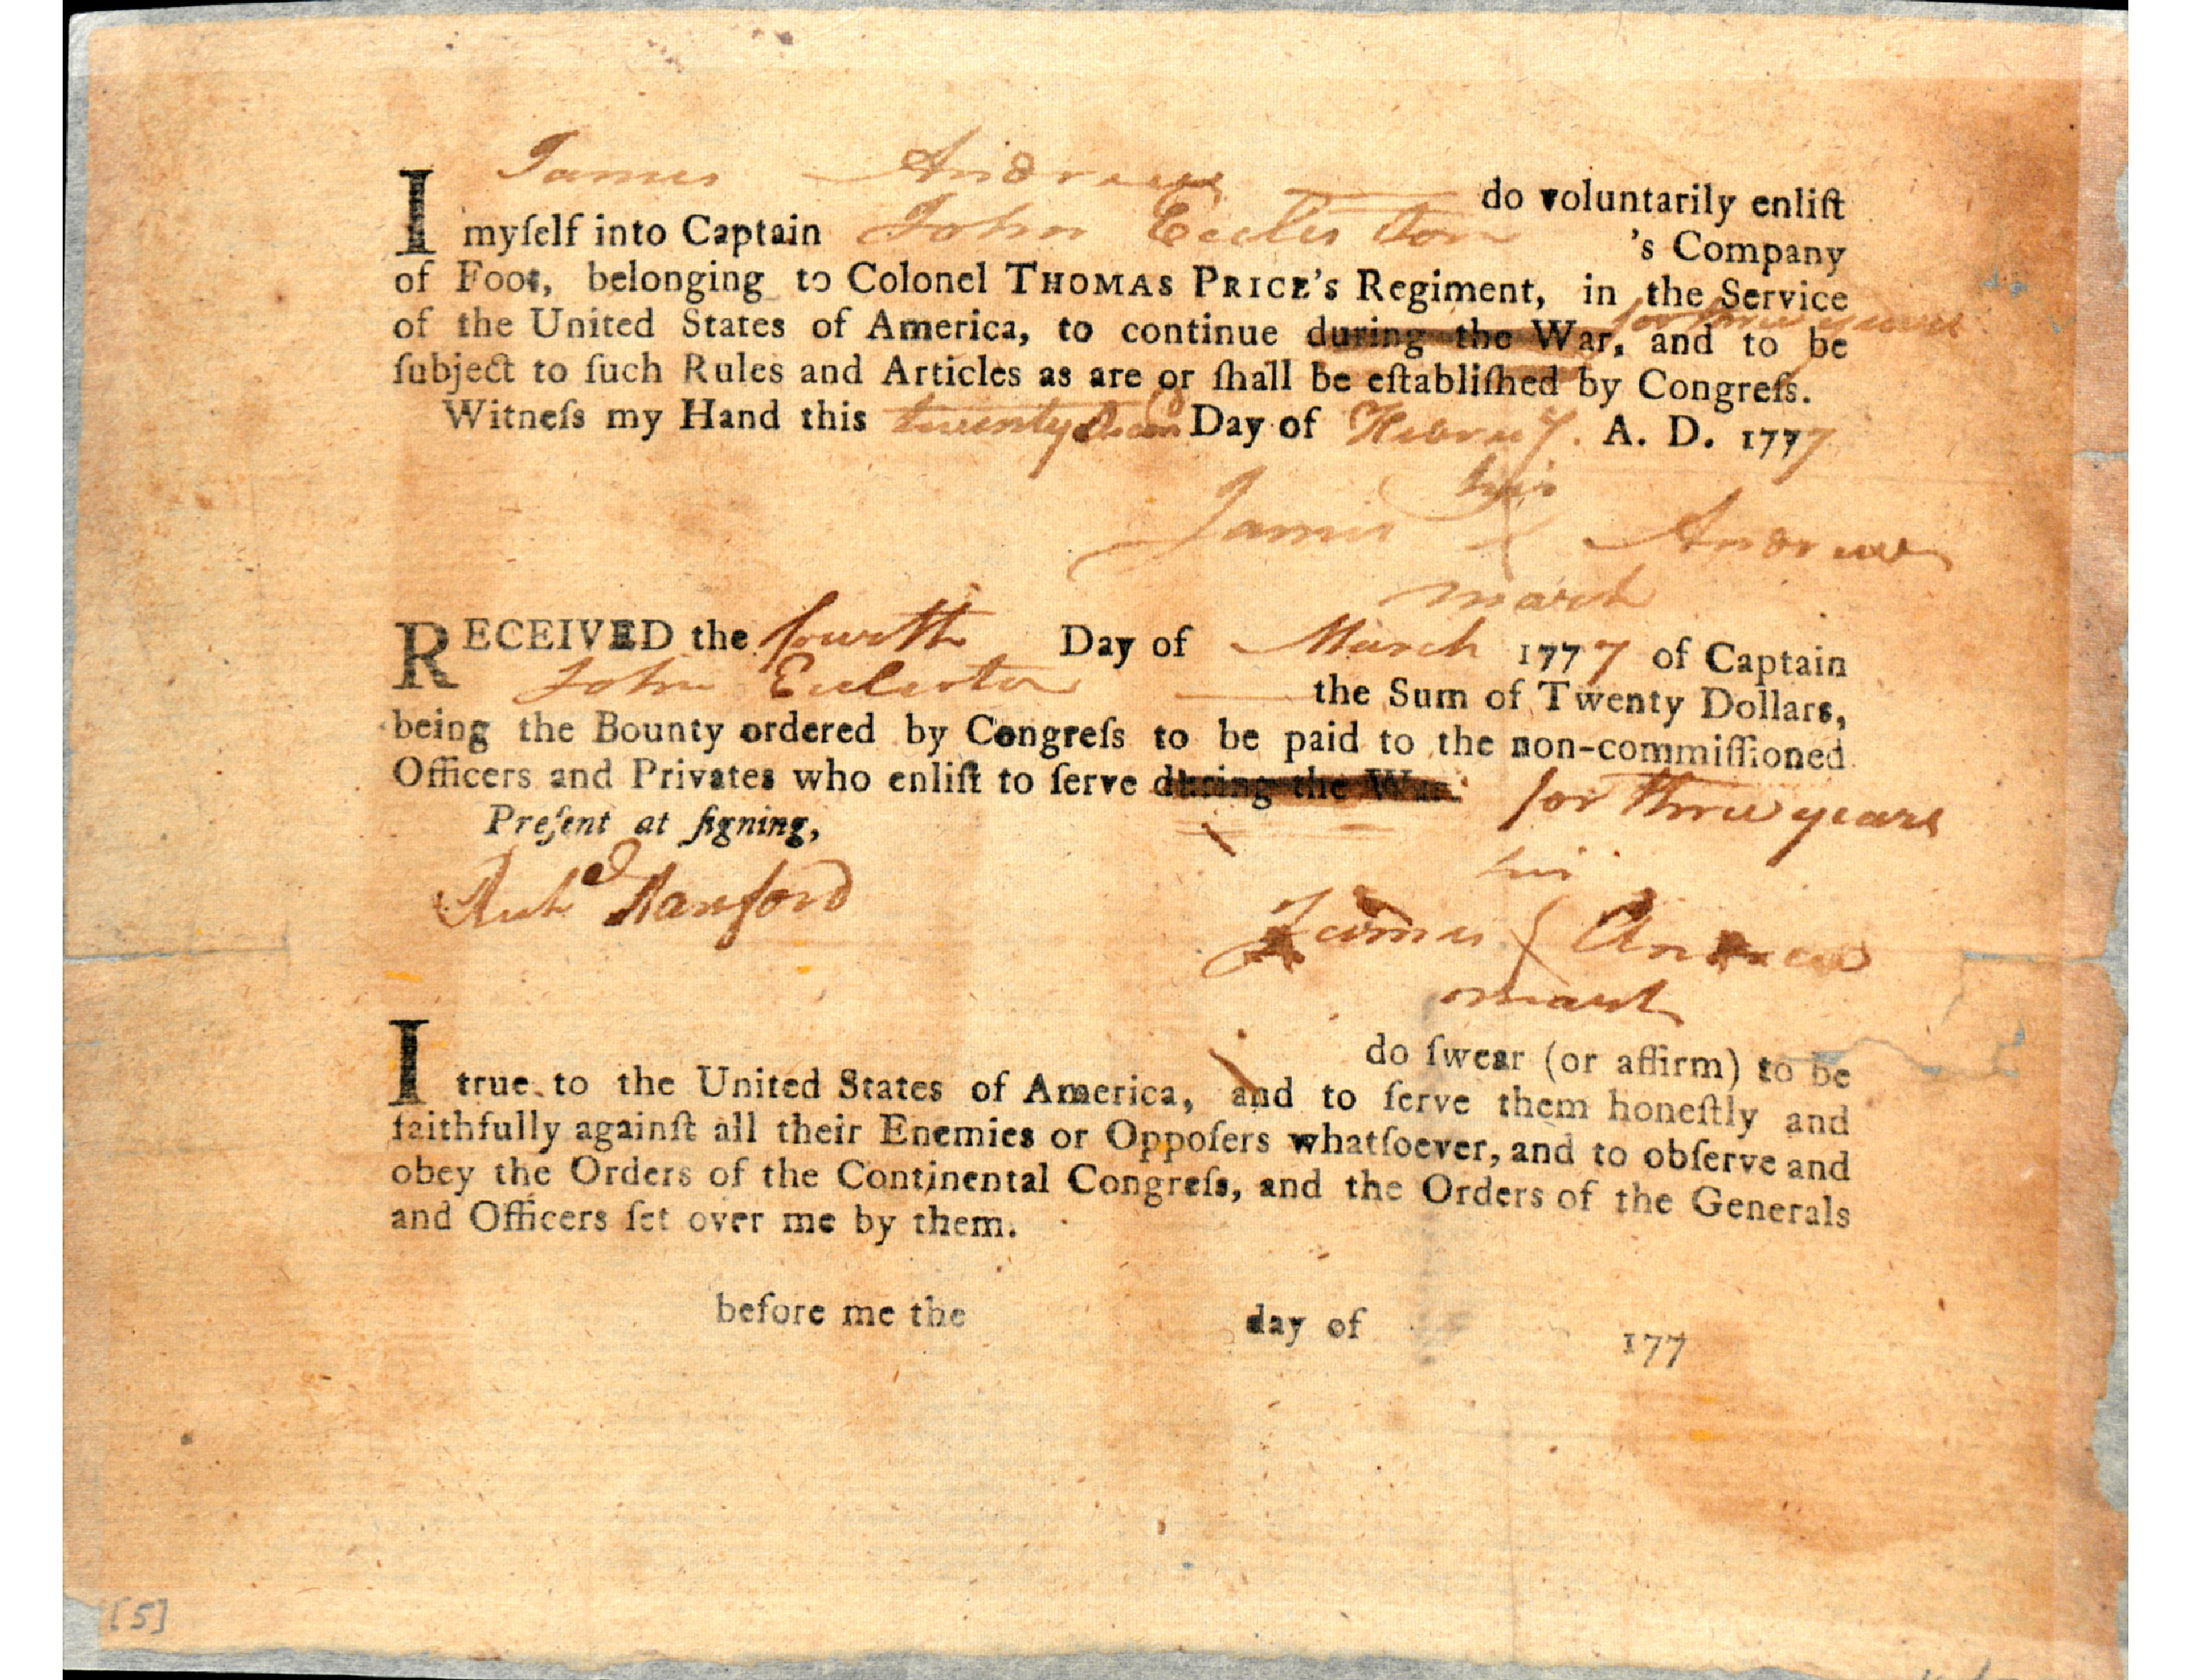 I James Andrew do voluntarily enliſt
myſelf into Captain John Eccleston 's Company
of Foot, belonging to Colonel THOMAS PRICE'S Regiment, in the Service
for three years
of the United States of America, to continue during the War, and to be
ſubject to ſuch Rules and Articles as are or ſhall be eſtabliſhed by Congreſs.
Witneſs my Hand this twenty Day of A. D. 1777
his
James Andrew
mark
RECEIVED the fourth Day of March 1777 of Captain
John Eccleston the Sum of Twenty Dollars,
being the Bounty ordered by Congreſs to be paid to the non-commiſſioned
Officers and Privates who enliſt to ſerve during the War. for three years
Preſent at ſigning,
his
Richd
James Andrew
mark
I do ſwear (or affirm) to be
true to the United States of America, and to ſerve them honeſtly and
faithfully againſt all their Enemies or Oppoſers whatſoever, and to obſerve and
obey the Orders of the Continental Congreſs, and the Orders of the Generals
and Officers ſet over me by them.
before me the day of 177
[5]